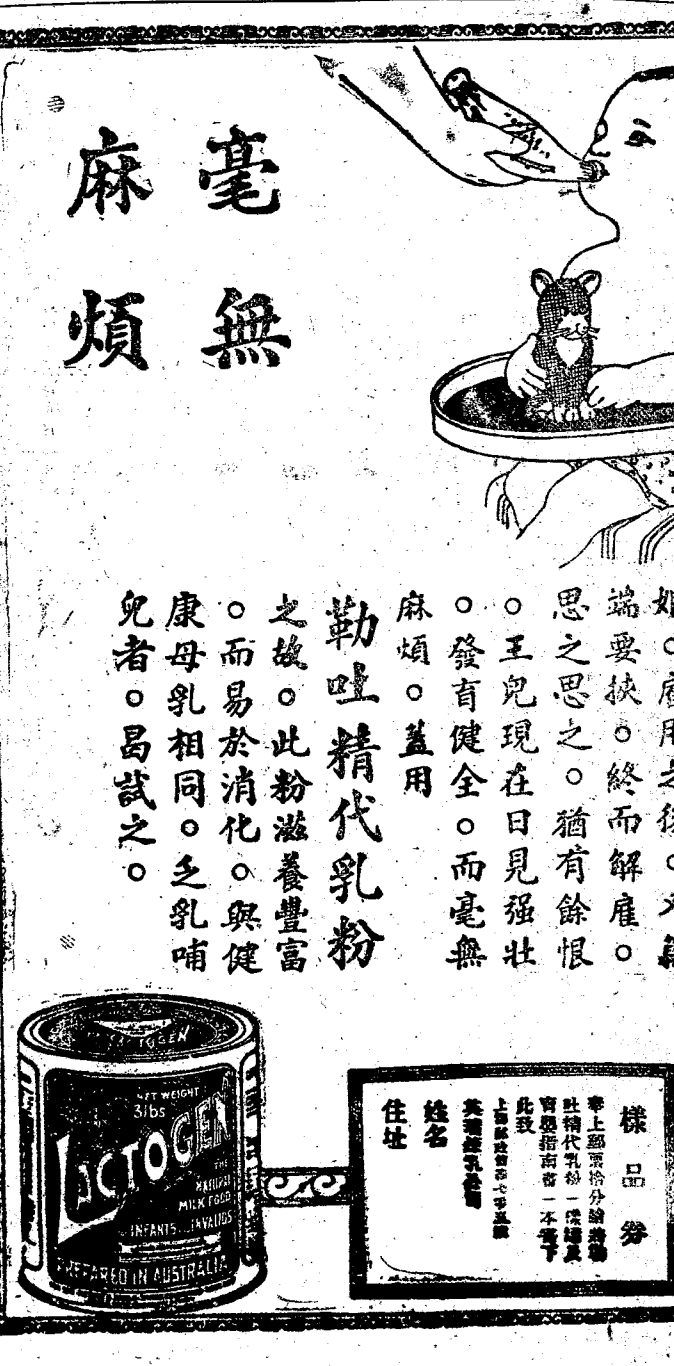 毫無
麻煩
端要挾。終而解雇。
思之思之。猶有餘恨
。王兒現在日見强壯
。發育健全。而毫無
麻煩。蓋用
勒吐精代乳粉
之故。此粉滋養豐富
。而易於消化。與健
康母乳相同。乏乳哺
兒者。曷試之。
LACTOGEN
NET WEIGHT
3lbs
LACTOGEN
THE
NATURAL
MILK FOOD
INFANTS
INVALIDS
PREPARED IN AUSTRALIA
樣品券
奉上郵票拾分請將勒
吐精代乳粉一樣罐及
育嬰指南書一本寄下
此致
英瑞煉乳公司
姓名
住址